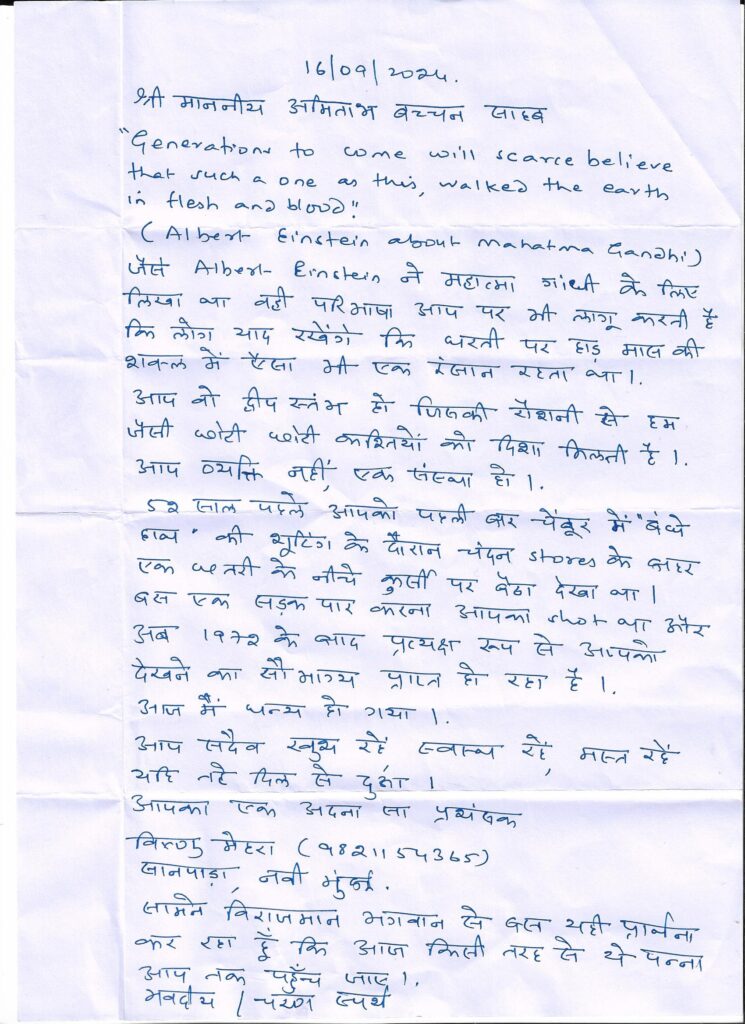 16/09/2024.
श्री माननीय अमिताभ बच्चन साहब
"Generations to come will scarce believe
that such a one as this, walked the earth
in flesh and blood".
(Albert Einstein about Mahatma Gandhi)
जैसे Albert Einstein ने महात्मा गांधी के लिए
लिखा था वही परिभाषा आप पर भी लागू करती है
कि लोग याद रखेंगे कि धरती पर हाड़ मास की
शक्ल में ऐसा भी एक इंसान रहता था।
आप वो द्वीप स्तंभ हो जिसकी रोशनी से हम
जैसी छोटी छोटी कश्तियों को दिशा मिलती है।
आप व्यक्ति नहीं, एक संस्था हो।
52 साल पहले आपको पहली बार चेंबूर में "बंधे
हाथ" की शूटिंग के दौरान चंदन stores के बाहर
एक छतरी के नीचे कुर्सी पर बैठा देखा था।
बस एक सड़क पार करना आपका shot था और
अब 1972 के बाद प्रत्यक्ष रूप से आपको
देखने का सौभाग्य प्राप्त हो रहा है।
आज मैं धन्य हो गया।
आप सदैव खुश रहें स्वस्थ रहें, मस्त रहें
यहि तहे दिल से दुआ।
आपका एक अदना सा प्रशंसक
मेहरा (9821154365)
सानपाड़ा, नवी मुंबई.
सामने विराजमान भगवान से बस यही प्रार्थना
कर रहा हूँ कि आज किसी तरह से ये पन्ना
आप तक पहुँच जाए।
भवदीय / चरण स्पर्श